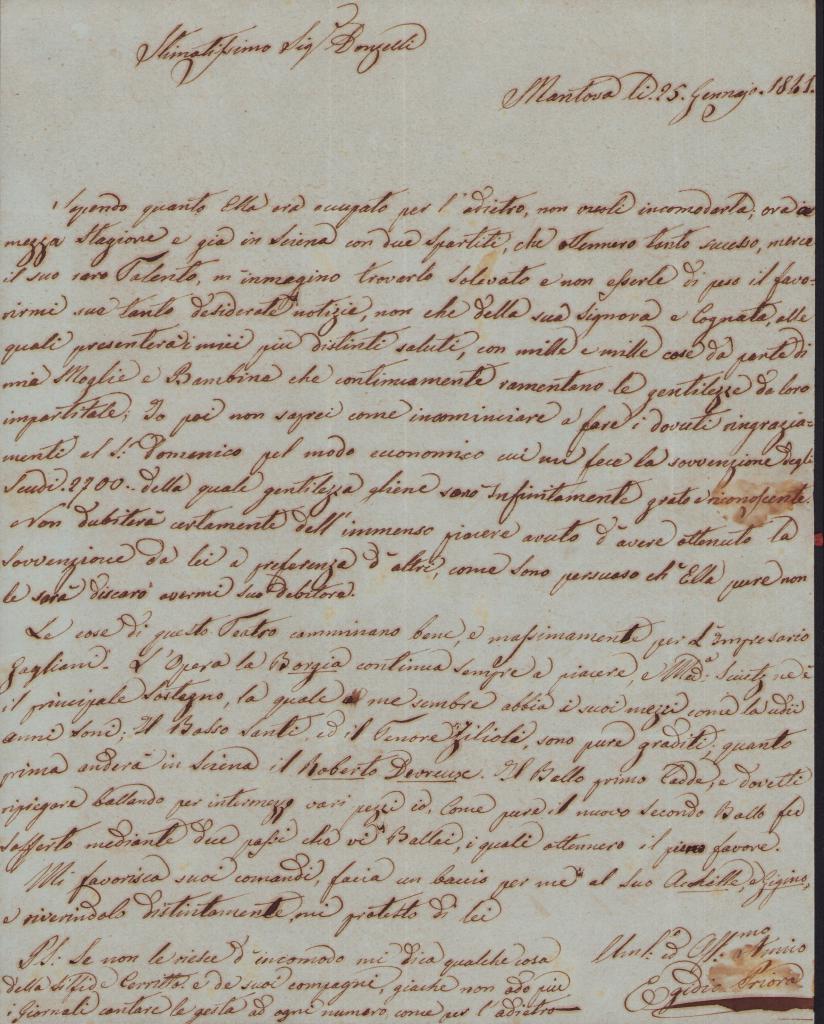 Stimatissimo Sigr Donzelli
Mantova li. 25. Gennajo. 1841.
Sapendo quanto Ella era occupato per l'adietro, non vuolli incomodarla, ora a
mezza Stagione e già in Sciena con due Spartiti, che ottennero tanto sucesso, mercé
il suo raro Talento, m'inmagino troverlo solevato e non esserle di peso il favo=
rirmi sue tanto desiderate notizie, non che della sua Signora e Cognata, alle
quali presenterà i miei più distinti saluti, con mille e mille cose da parte di
mia Moglie e Bambina che continuamente ramentano le gentilezze da loro
impartitale; Io poi non saprei come incominciare a fare i dovuti ringrazia=
menti al S: Domenico pel modo economico cui mi fece la sovvenzione degli
Scudi. 2700.. della quale gentilezza gliene sarò infinitamente grato e riconoscente.
Non dubiterà certamente dell'immenso piacere avuto d'avere ottenuto la
sovvenzione da lei a preferenza d'altri, come sono persuaso ch'Ella pure non
le sarà discaro avermi suo debitore.
Le cose di questo Teatro camminano bene, e massimamente per L'Impresario
Gagliani. L'Opera la Borgia continua sempre a piacere, e Mada: ne è
il principale sostegno, la quale a me sembra abbia i suoi mezzi come la udii
anni sono; Il Basso Santi, ed il Tenore Zilioli, sono pure graditi; quanto
prima anderà in Sciena il Roberto Devreux. Il Ballo primo Cadde, e dovetti
ripiegare ballando per intermezzo vari pezzi io, Come pure il nuovo secondo Ballo fu
sofferto mediante due passi che vi Ballai, i quali ottennero il pieno favore.
Mi favorisca suoi comandi, facia un baccio per me al suo Achille, e Gigino,
e riverindolo distintamente, mi protesto di lei
P.S: Se non le riesce d'incomodo mi dica qualche cosa
della Silfide Cerritto, e de suoi compagni, giache non odo più
i Giornali cantare le gesta ad ogni numero come per l'adietro
Uml: ed Aff:mo Amico
Egidio Priora